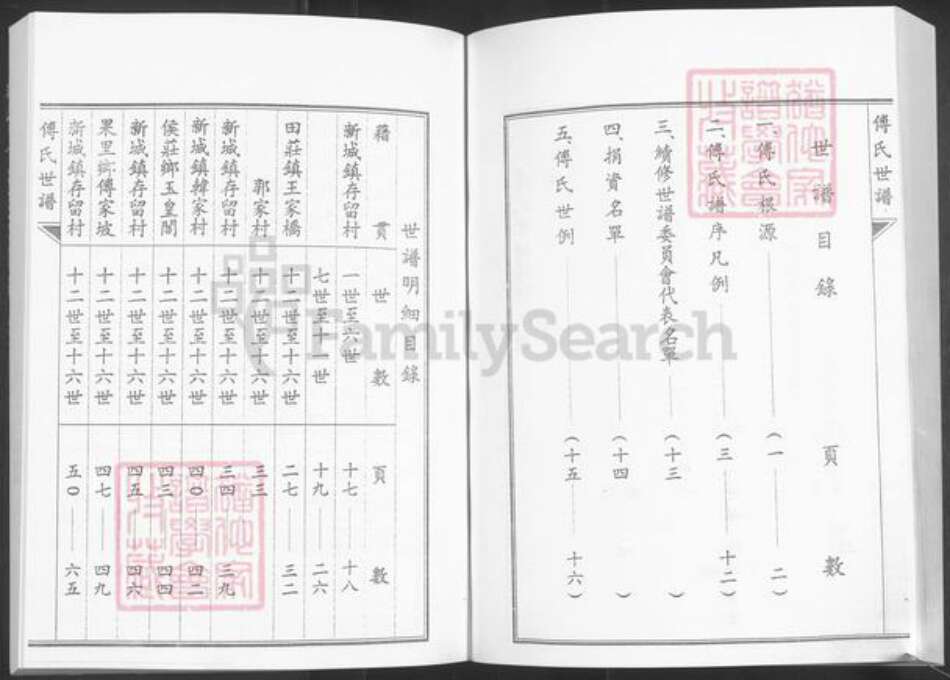 傅氏世譜
世譜目錄 頁數
一、傅氏根源 (一 二)
二、傅氏譜序凡例 (三 十二)
三、續修世譜委員會代表名單 (十三 )
四、捐資名單 (十四 )
五、傅氏世例 (十五 十六)
世譜明細目錄
籍貫 世數 頁數
新城鎮存留村 一世至六世 十七 十八
七世至十一世 十九 二六
田莊鎮王家橋 十二世至十六世 二七 三二
郭家村 十二世至十六世 三三
新城鎮存留村 十二世至十六世 三四 三九
新城鎮韓家村 十二世至十六世 四0 四二
侯莊鄉玉皇閣 十二世至十六世 四三 四四
新城鎮存留村 十二世至十六世 四五 四六
果里鄉傅家坡 十二世至十六世 四七 四九
新城鎮存留村 十二世至十六世 五0 六五
傅氏世譜
FamilySearch